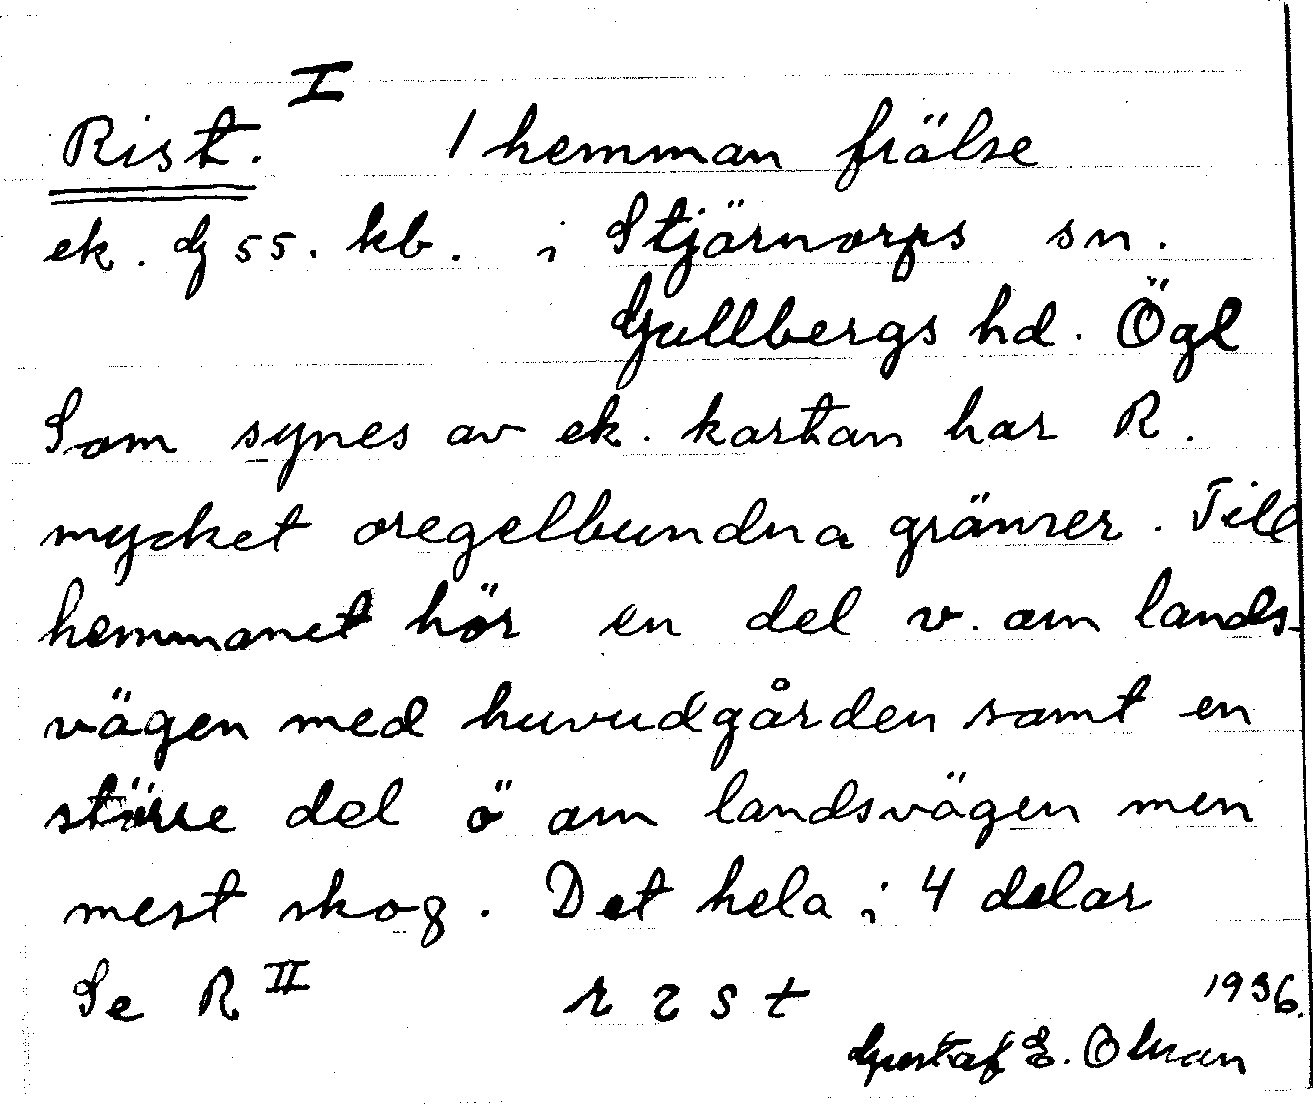 Rist. I 1 hemman frälse
ek. dj 55. kb. i Stjärnorps sn.
Gullbergs hd. Ögl
Som synes av ek. kartan har R.
mycket oregelbundna gränser. Till
hemmanet hör en del v. om lands-
vägen med huvudgården samt en
större del ö om landsvägen men
mest skog. Det hela i 4 delar
Se R II r ɩ s t 1936.
Gustaf E. Olsson